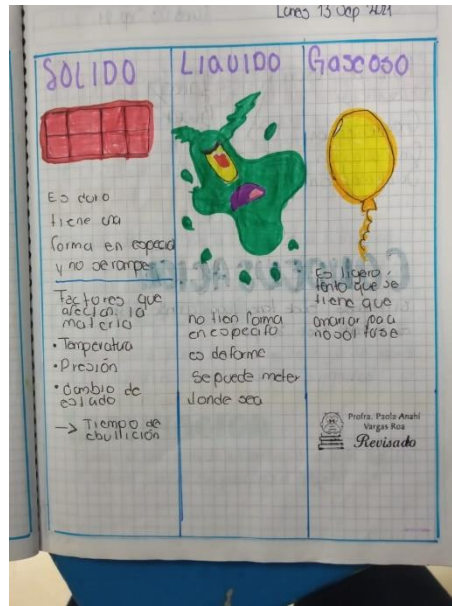 Lunes 13 Sep 2021
SOLIDO
Es duro
tiene una
forma en especial
y no se rompe
Factores que
afectan la
materia
• Temperatura
• Presión
• Cambio de
estado
→ Tiempo de
ebullición
LIQUIDO
no tien forma
en especifo
es deforme
Se puede meter
donde sea
Gaseoso
Es ligero,
tanto que se
tiene que
amarrar para
no
Profra. Paola Anahí
Vargas Roa
Revisado